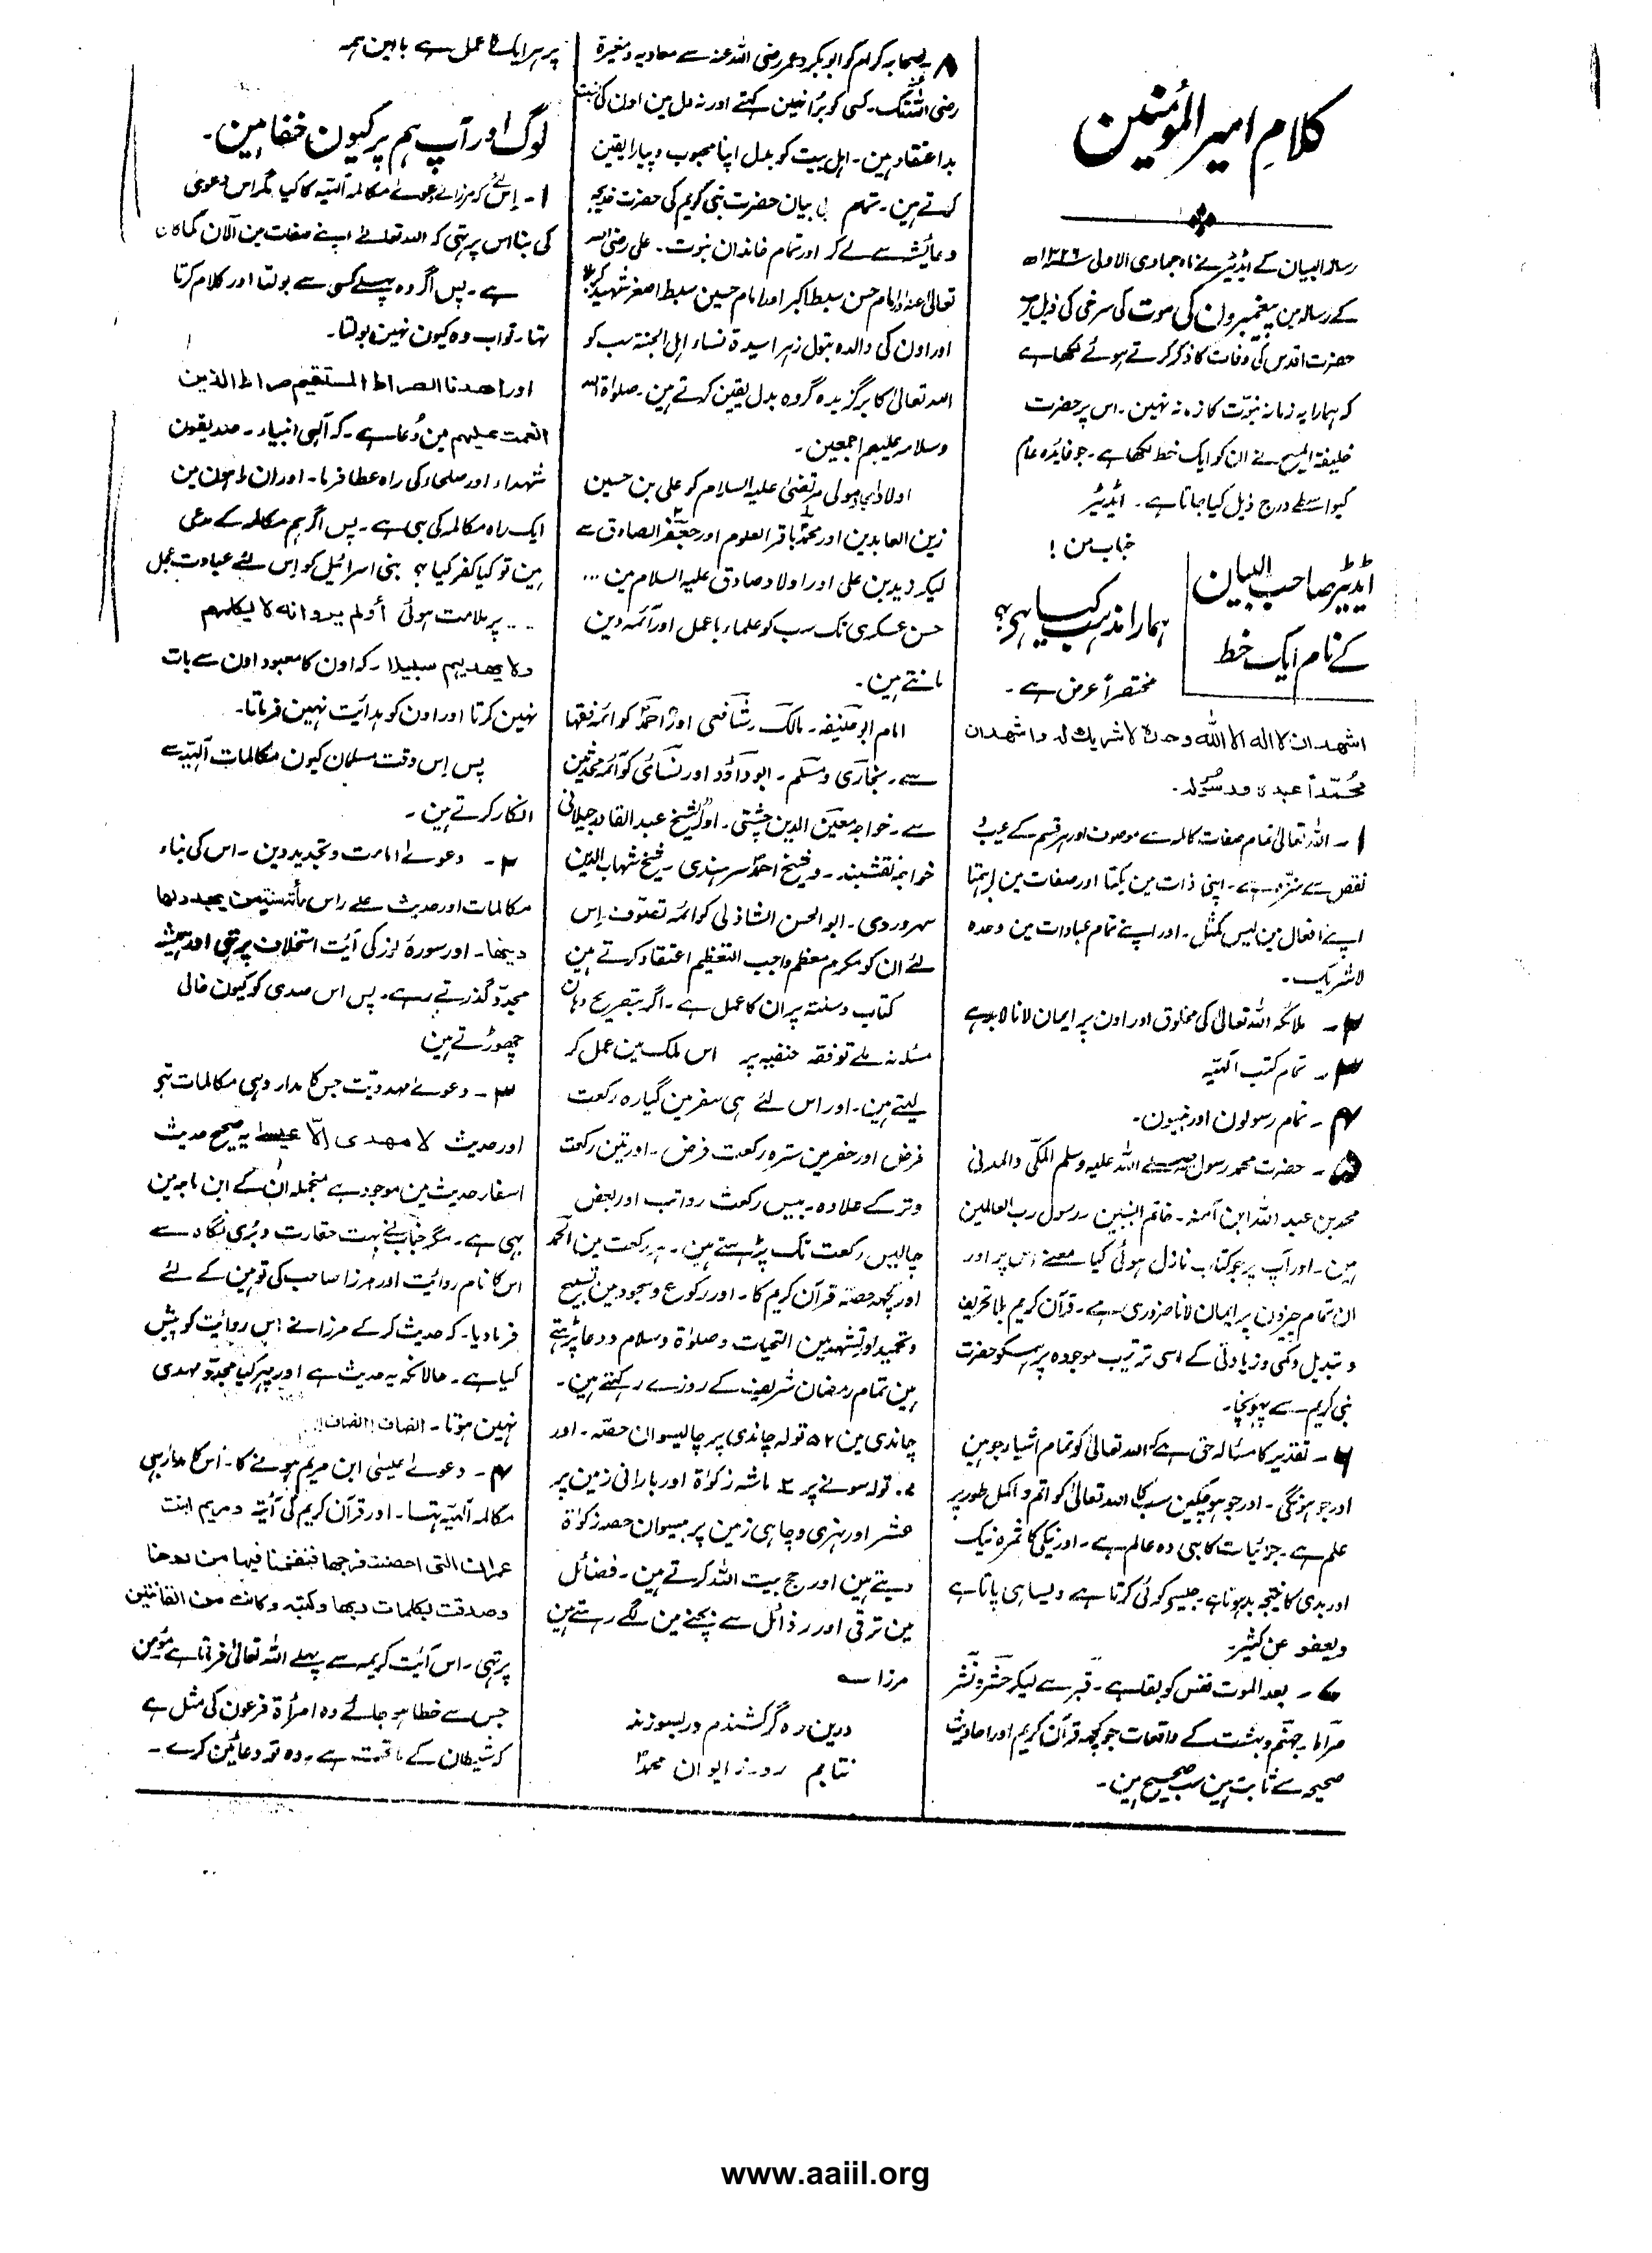 کلامِ امیر المؤمنین
رسالہ البیان کے ایڈیٹر نے ماہ جمادی الاولی ۱۳۲۶ھ
کے رسالہ مین پیغمبرون کی موت کی سرخی کی ذیل مین
حضرت اقدس کی وفات کا ذکر کرتے ہوئے لکھا ہے
کہ ہمارا یہ زمانہ نبوّت کا زمانہ نہین۔ اس پر حضرت
خلیفۃ المسیح نے ان کو ایک خط لکھا ہے۔ جو فایدہ عام
کیواسطے درج ذیل کیا جاتا ہے۔ ایڈیٹر
ایڈیٹر صاحب البیان
کے نام ایک خط
جناب من!
ہمارا مذہب کیا ہے؟
مختصراً عرض ہے۔
اشہد ان لا الہ الا اللہ وحدہ لا شریک لہ واشہد ان
محمّداً عبدہ ورسولہ۔
۱۔ اللہ تعالیٰ تمام صفات کاملہ سے موصوف اور ہر قسم کے عیب و
نقص سے منزّہ ہے۔ اپنی ذات مین یکتا اور صفات مین بےہمتا
اپنے افعال مین لیس کمثلہ۔ اور اپنے تمام عبادات مین وحدہ
لاشریک۔
۲۔ ملائکہ اللہ تعالیٰ کی مخلوق اور اون پر ایمان لانا لابد ہے
۳۔ تمام کتب الٰہیہ
۴۔ تمام رسولون اور نبیون۔
۵۔ حضرت محمد رسول صلے اللہ علیہ وسلم المکّی والمدنی
محمد بن عبد اللہ ابن آمنہ۔ خاتم النبیین۔ رسول رب العالمین
ہین۔ اور آپ پر جو کتاب نازل ہوئی کیا معنے اس پر اور
ان تمام چیزون پر ایمان لانا ضروری ہے۔ قرآن کریم بلا تحریف
و تبدیل و کمی و زیادتی کے اسی ترتیب موجودہ پر ہمکو حضرت
نبی کریم سے پہونچا۔
۶۔ تقدیر کا مسئلہ حق ہے کہ اللہ تعالیٰ کو تمام اشیاء جو ہین
اور جو ہونگی۔ اور جو ہو چکین سب کا اللہ تعالیٰ کو اتم و اکمل طور پر
علم ہے۔ جزئیات کا بھی وہ عالم ہے۔ اور نیکی کا ثمرہ نیک
اور بدی کا نتیجہ بد ہوتا ہے جیسے کوئی کرتا ہے ویسا ہی پاتا ہے
ویعفو عن کثیر۔
۷۔ بعد الموت نفس کو بقا ہے۔ قبر سے لیکر حشر و نشر
صراط۔ جہنّم و بہشت کے واقعات جو کچھ قرآن کریم اور احادیث
صحیحہ سے ثابت ہین سب صحیح ہین۔
۸۔ صحابہ کرام کو ابوبکر و عمر رضی اللہ عنہ سے معاویہ و مغیرۃ
رضی اللہ عنہ تک۔ کسی کو بُرا نہین کہتے اور نہ دل مین اون کی نسبت
بد اعتقاد ہین۔ اہل بیت کو بدل اپنا محبوب و پیارا یقین
کرتے ہین۔ تمام بی بیان حضرت نبی کریم کی حضرت خدیجہ
و عائشہ سے لے کر اور تمام خاندان نبوت۔ علی رضی اللہ
تعالیٰ عنہ و امام حسن سبط اکبر اور امام حسین سبط اصغر شہید کربلا
اور اون کی والدہ بتول زہرا سیدۃ نساء اہل الجنۃ سب کو
اللہ تعالیٰ کا برگزیدہ گروہ بدل یقین کرتے ہین۔ صلوٰۃ اللہ
وسلامہ علیہم اجمعین۔
اولاد مولی مرتضیٰ علیہ السلام کو علی بن حسین
زین العابدین اور محمد باقر العلوم اور جعفر الصادق سے
لیکر زید بن علی اور اولاد صادق علیہ السلام مین ...
حسن عسکری تک سب کو علماء باعمل اور آئمہ دین
مانتے ہین۔
امام ابو حنیفہ۔ مالک۔ شافعی اور احمد کو ائمہ فقہا
سے۔ بخاری و مسلم۔ ابوداؤد اور نسائی کو آئمہ محدثین
سے۔ خواجہ معین الدین چشتی۔ اور شیخ عبد القادر جیلانی
خواجہ نقشبند۔ و شیخ احمد سرہندی۔ شیخ شہاب الدین
سہروردی۔ ابو الحسن الشاذلی کو ائمہ تصوّف۔ اِس
لئے ان کو مکرم معظم واجب التعظیم اعتقاد کرتے ہین
کتاب و سنتہ پر ان کا عمل ہے۔ اگر بتصریح وہان
مسئلہ نہ ملے تو فقہ حنفیہ پر اس ملک مین عمل کر
لیتے ہین۔ اور اس لئے ہی سفر مین گیارہ رکعت
فرض اور حضر مین سترہ رکعت فرض۔ اور تین رکعت
وتر کے علاوہ۔ بیس رکعت رواتب اور بعض
چالیس رکعت تک پڑہتے ہین۔ ہر رکعت مین الحمد
اور کچھ حصّہ قرآن کریم کا۔ اور رکوع و سجود مین تسبیح
و تحمید اور تشہد مین التحیات و صلوٰۃ و سلام و دعا پڑہتے
ہین تمام رمضان شریف کے روزے رکہتے ہین۔
چاندی مین ۵۲ تولہ چاندی پر چالیسوان حصّہ۔ اور
تولہ سونے پر ۲ ماشہ زکوٰۃ اور بارانی زمین پر
عشر اور نہری و چاہی زمین پر بیسوان حصہ زکوٰۃ
دیتے ہین اور حج بیت اللہ کرتے ہین۔ فضائل
مین ترقی اور رذائل سے بچنے مین لگے رہتے ہین
مرزا
درین رہ گر کشندم ور بسوزند
نتابم رو ز ایوان محمدؐ
پر ہر ایک کا عمل ہے با این ہمہ
لوگ اور آپ ہم پر کیون خفا ہین۔
۱۔ اِس لئے کہ مرزا نے دعوے مکالمہ الٰہیہ کا کیا مگر اس دعویٰ
کی بنا اس پر تہی کہ اللہ تعالےٰ اپنے صفات مین الآن کما کان
ہے۔ پس اگر وہ پہلے کسی سے بولتا اور کلام کرتا
تہا۔ تو اب وہ کیون نہین بولتا۔
اور اھدنا الصراط المستقیم صراط الذین
انعمت علیہم مین دُعا ہے۔ کہ الٰہی انبیاء۔ صدیقون
شہداء۔ اور صلحاء کی راہ عطا فرما۔ اور ان راہون مین
ایک راہ مکالمہ کی بھی ہے۔ پس اگر ہم مکالمہ کے مدعی
ہین تو کیا کفر کیا؟ بنی اسرائیل کو اِس لئے عبادت عجل
.... پر ملامت ہوئی أولم یروا انه لا یکلمہم
ولا یھدیہم سبیلا۔ کہ اون کا معبود اون سے بات
نہین کرتا اور اون کو ہدائیت نہین فرماتا۔
پس اِس وقت مسلمان کیون مکالمات الٰہیّہ سے
انکار کرتے ہین۔
۲۔ دعوے امامت و تجدید دین۔ اس کی بناء
مکالمات اور حدیث علے راس مأتہ من یجدد لھا
دینھا۔ اور سورۂ نور کی آئت استخلاف پر تہی اور ہمیشہ
مجدّد گذرتے رہے۔ پس اس صدی کو کیون خالی
چھوڑتے ہین
۳۔ دعوے مہدویّت جس کا مدار وہی مکالمات تہے
اور حدیث لا مھدی إلّا عیسیٰ یہ صحیح حدیث
اسفار حدیث مین موجود ہے منجملہ اُن کے ابن ماجہ مین
بھی ہے۔ مگر جناب نے بہت حقارت و بُری نگاہ سے
اس کا نام روائیت اور مرزا صاحب کی توہین کے لئے
فرما دیا۔ کہ حدیث کر کے مرزا نے اس روائیت کو پیش
کیا ہے۔ حالانکہ یہ حدیث ہے اور پہر کیا مجدّد مہدی
نہین ہوتا۔ انصاف! انصاف!!
۴۔ دعوے عیسیٰ ابن مریم ہونے کا۔ اس کا مدار بھی
مکالمہ الٰہیّہ تہا۔ اور قرآن کریم کی آیۃ ومریم ابنت
عمران التی احصنت فرجها فنفخنا فیها من روحنا
وصدقت بکلمات ربها وکتبه وکانت من القانتین
پر تہی۔ اس آئیت کریمہ سے پہلے اللہ تعالیٰ فرماتا ہے مؤمن
جس سے خطا ہو جائے وہ امرأۃ فرعون کی مثل ہے
کہ شیطان کے ماتحت ہے۔ وہ تو دعائین کرے۔
www.aaiil.org